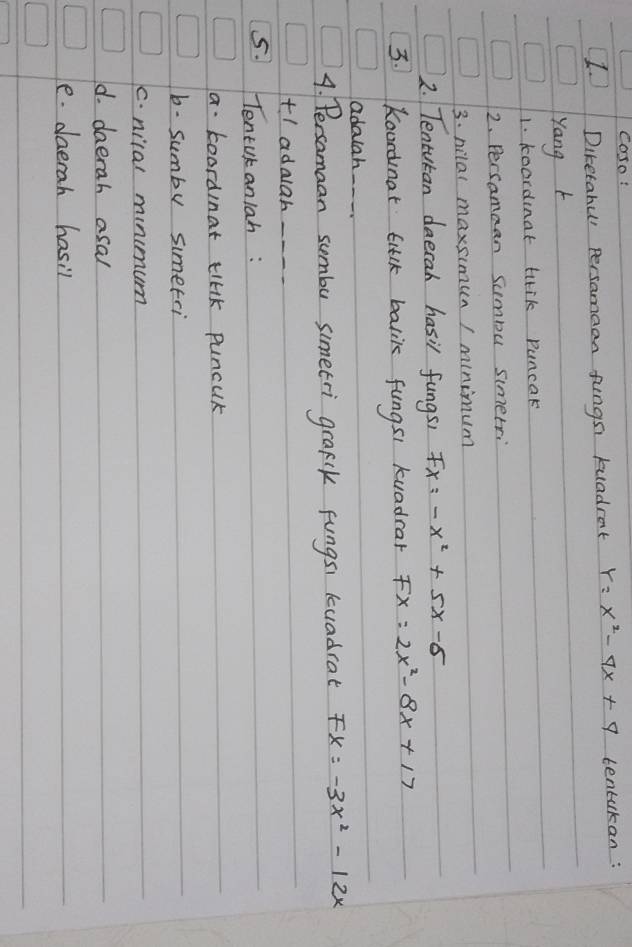 Coso:
1. Diketahui Persamaan fungsi kuadrat Y = x² - 9x + 9 tentukan:
Yang t
1. koordinat titik Puncak
2. Persamaan Sumbu simetri
3. nilai maxsimun / minimum
2. Tentukan daerah hasil fungsi Fx = -x² + 5x - 5
3. Koordinat titik balik fungsi kuadrat Fx = 2x² - 8x + 17
adalah ----.
4. Persamaan sumbu simetri grafik fungsi kuadrat Fx = -3x² - 12x
+1 adalah ----.
5. Tentukanlah :
a. koordinat titik Puncuk
b. Sumby simetri
c. nilai minimum
d. daerah asal
e. daerah hasil